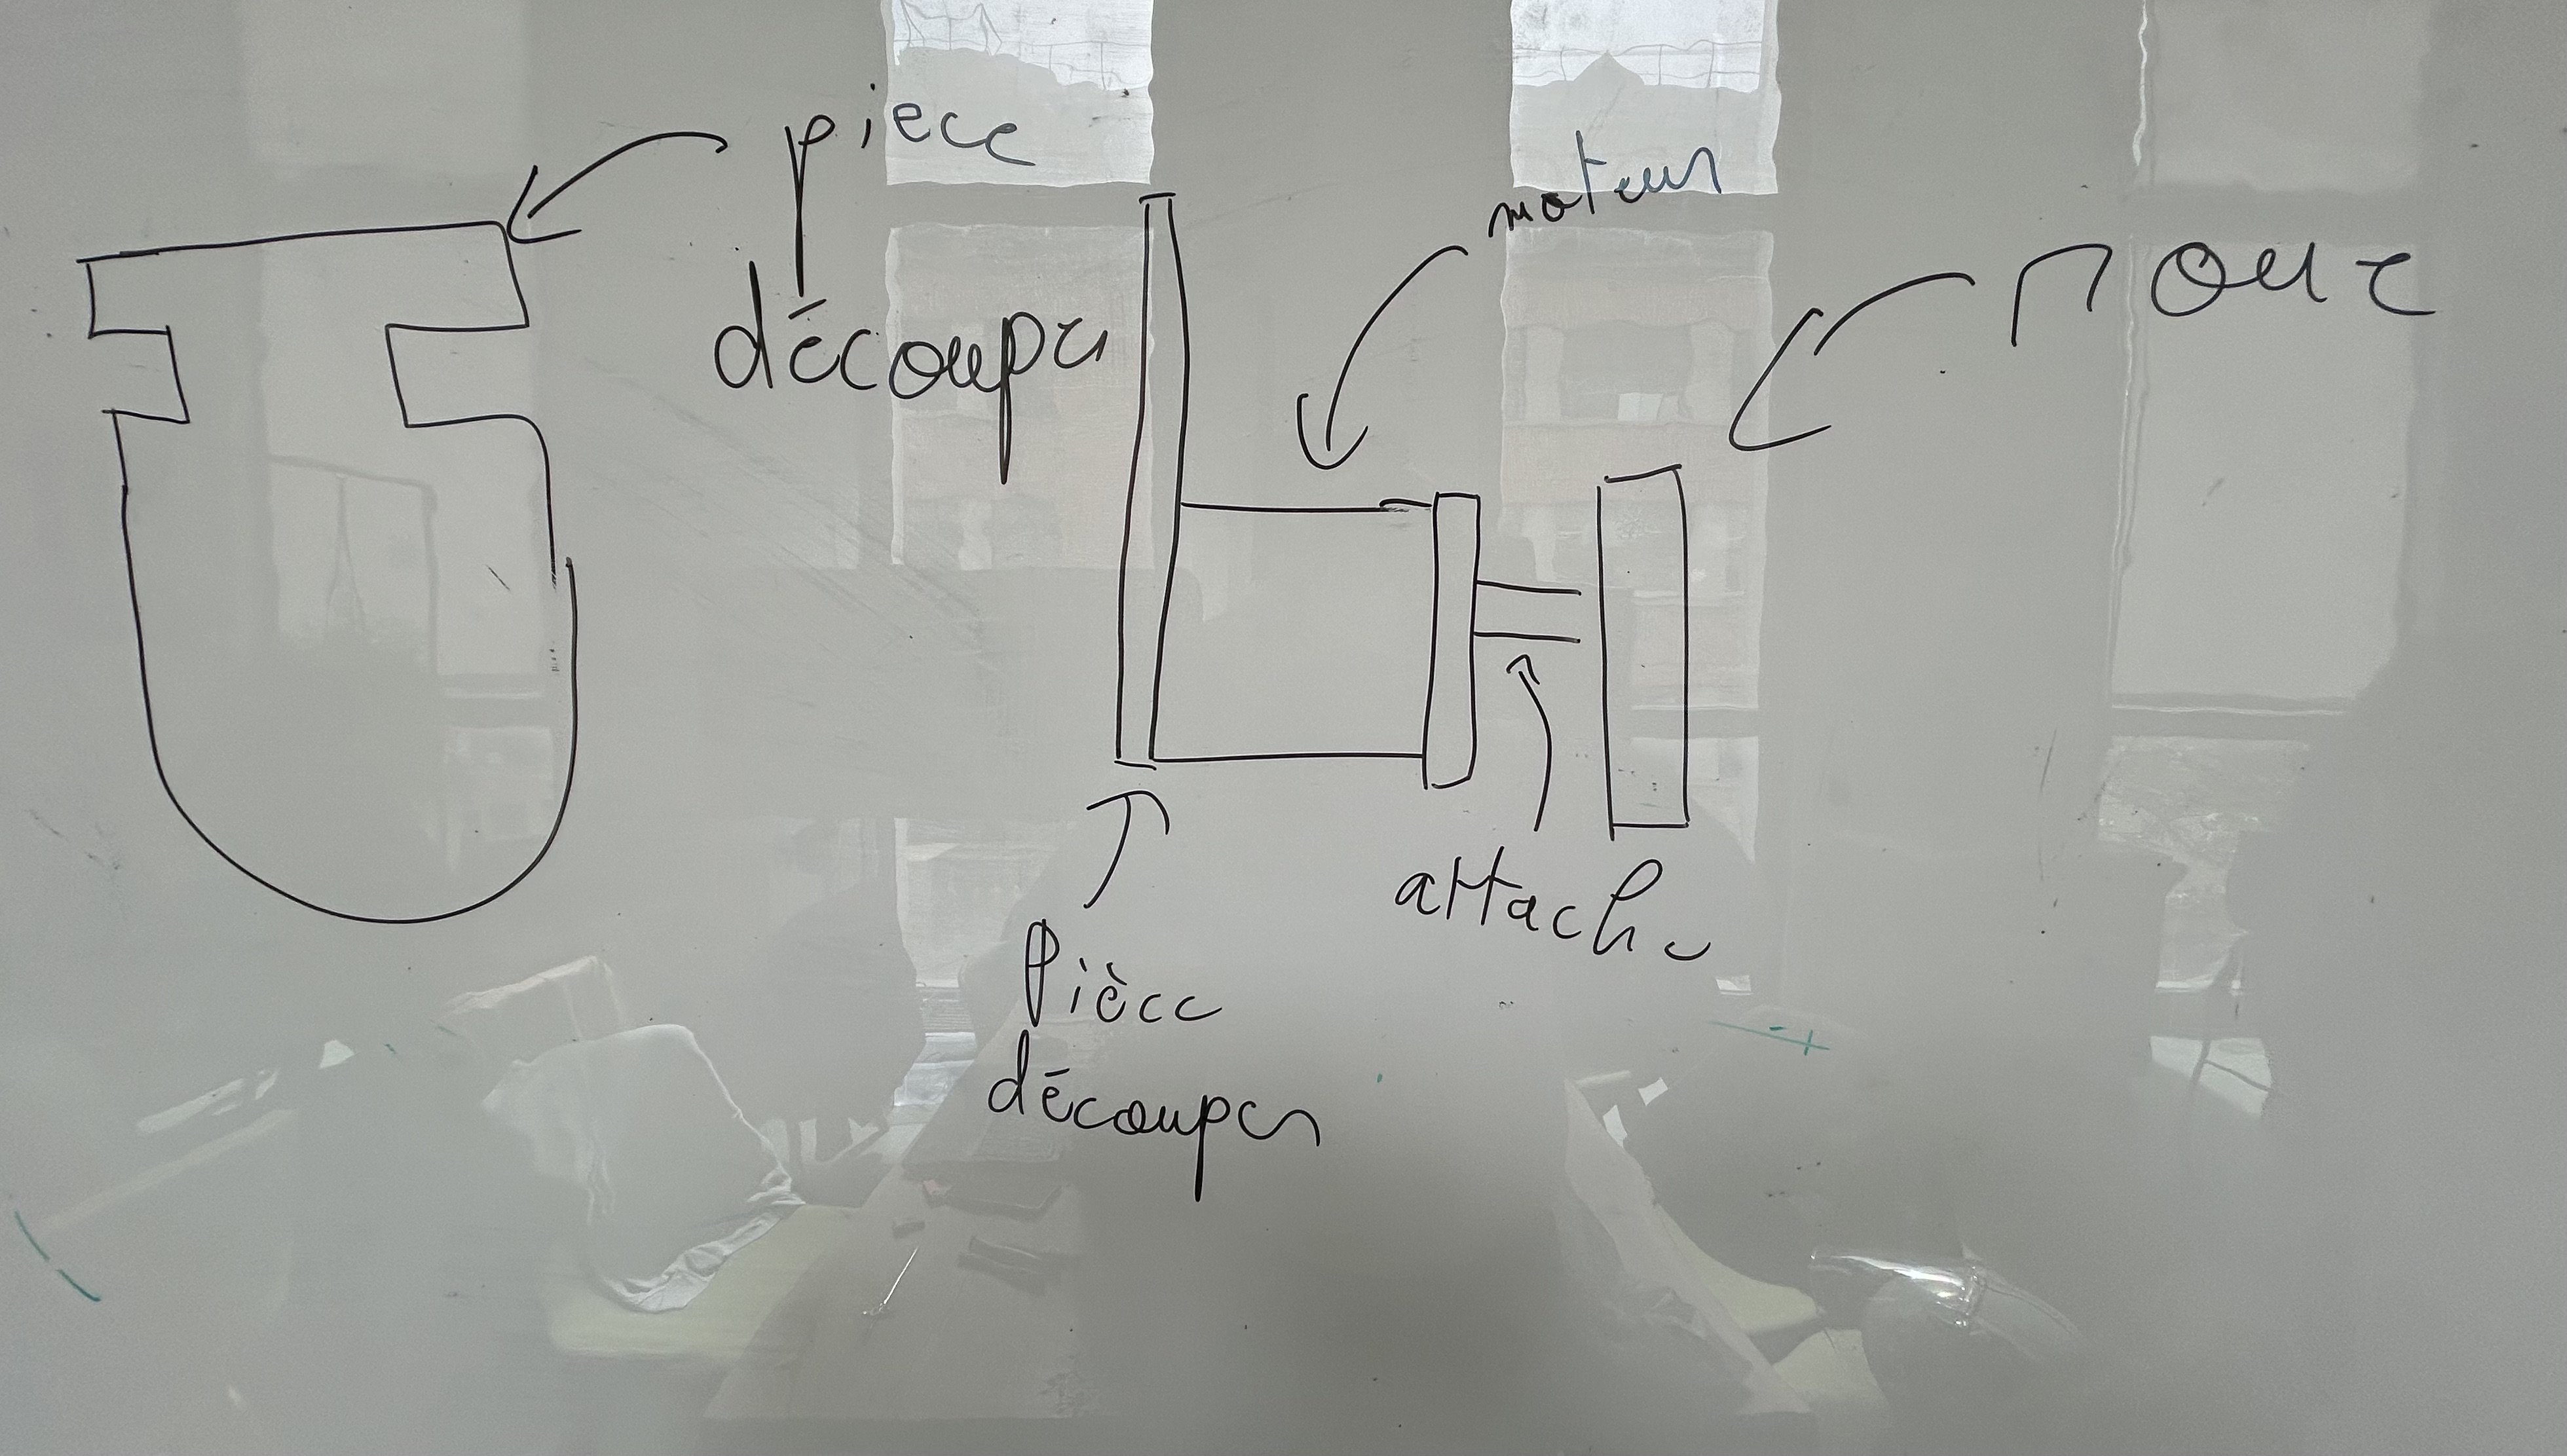 piece
découper
moteur
roue
attache
Pièce
découper